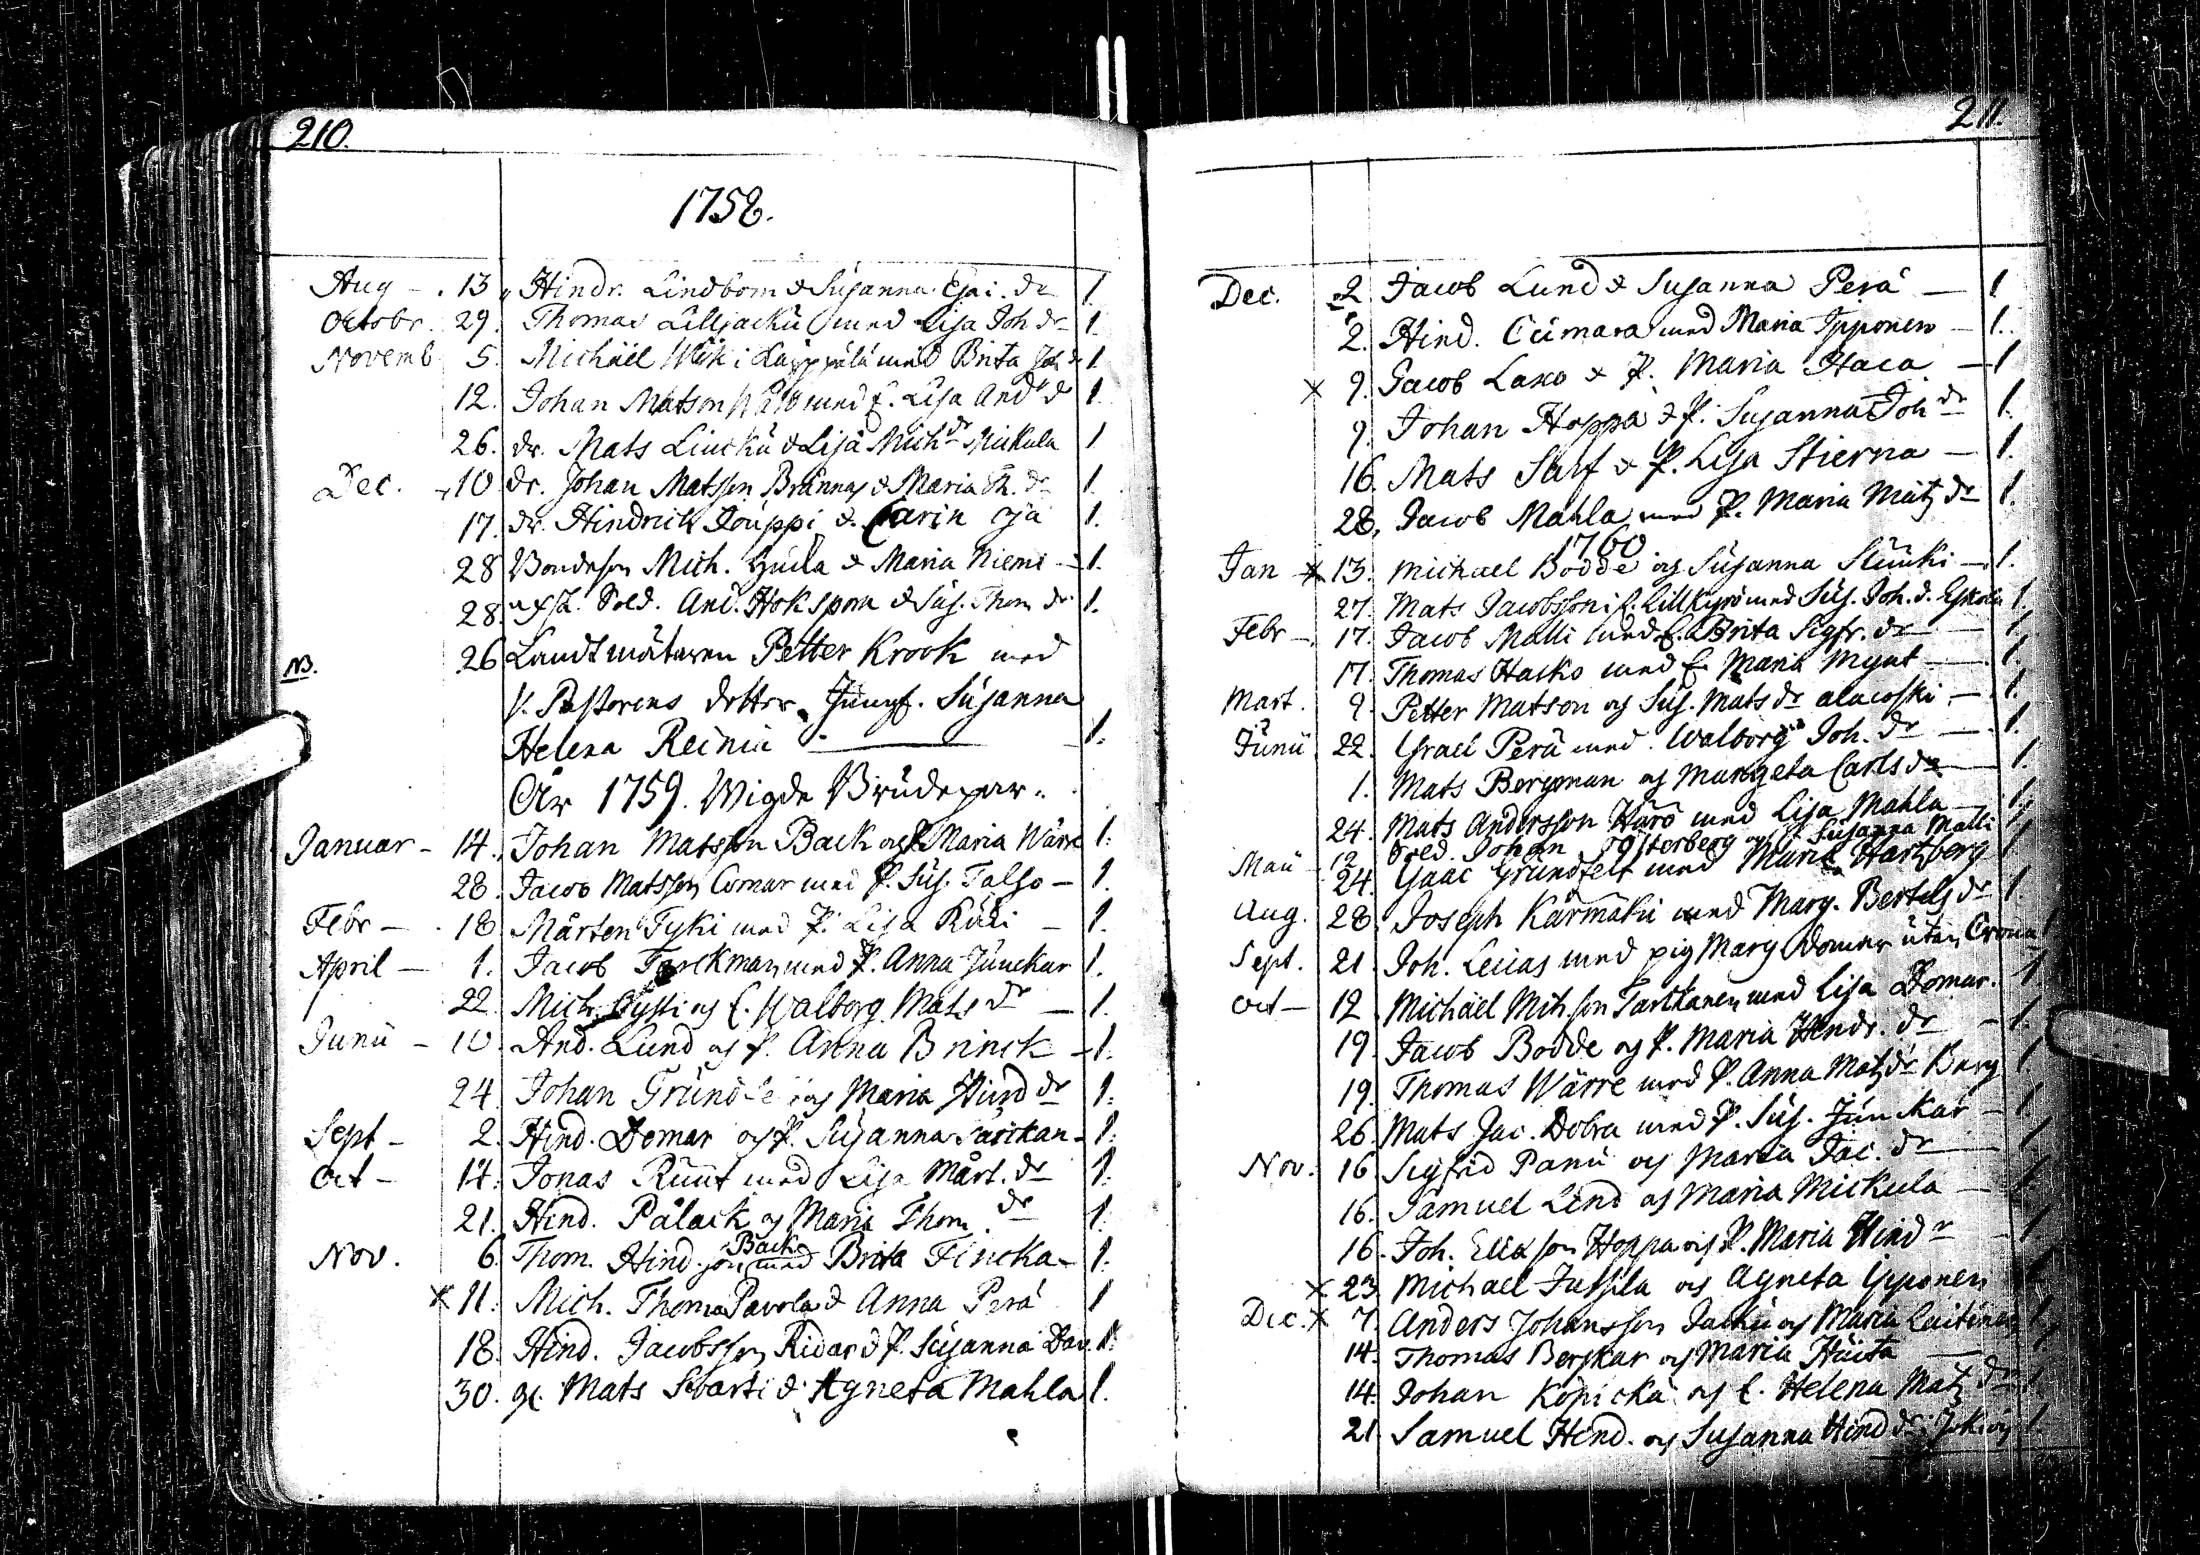 210.
1758.
Aug - . 13 Hindr. Lindbom & Susanna Esai. dr 1
Octobr. 29. Thomas Lilljackü med Lisa Joh dr 1.
Novemb 5. Michäel i Käppälä med Brita Joh dr 1
12. Johan Matson med E. Lisa And. dr 1.
26. dr. Mats Liuckü & Lisa Mich dr Mickula 1
Dec. 10 dr. Johan Matsson Brännas & Maria Th. dr 1.
17. dr. Hindrich Kouppi & Carin Oja 1.
28 Bondeson Mich. & Maria Niemi - 1.
28. Sold. And. Hoksporn & Sus. Thom dr. 1.
NB. 26 Landtmätaren Petter Krook med
V. Pastorens dotter Jungf. Susanna
Helena Reinia — 1.
År 1759. Wigde Brüdepar.
Januar - 14. Johan Matsson Back och P. Maria Wärre 1.
28. Jacob Matsson Comar med P. Sus. Talso - 1.
Febr - . 18 Mårten Tyki med P. Lisa - 1.
April - 1. Jacob med P. Anna Junckar 1.
22. Mich. och E. Walborg Mats dr - 1.
Junii - 10. And. Lund och P. Anna Brinck - 1.
24. Johan och Maria Hind dr 1.
Sept - 2. Hind. Domar och P. Susanna Tarckan - 1.
Oct - 14. Jonas Ruut med Lisa Mårt. dr 1.
21. Hind. Pålack och Maria Thom. dr 1.
Back
Nov. 6. Thom. Hind. son med Brita Fincka - 1.
X 11. Mich. Thoma Pavola & Anna Perä 1
18. Hind. Jacobsson Ridar & P. Susanna Dav. 1.
30. gl. Mats Sbarti & Agneta Mahla 1.
211.
Dec. 2 Jacob Lund & Susanna Perä — 1
2. Hind. Cumara med Maria Ypponen - 1.
X 9. Jacob Laxo & P. Maria Haca - 1
9. Johan Hoppa & P. Susanna Joh dr 1.
16. Mats Sarf & P. Lisa Stierna - 1.
28. Jacob Mahla med P. Maria Matz dr 1.
1760
Jan - X 13. Michael Bodde och Susanna - 1.
27. Mats Jacobsson i E. Lillkyro med Sus. Joh. d. Eskola 1.
Febr - 17. Jacob Malli med E. Brita Sigfr. dr - 1.
17. Thomas Hasko med E. Maria Mynt - 1.
Mart. 9. Petter Matson och Sus. Mats dr alacoski - 1.
Junii 22. Israel Perä med Walborg Joh. dr - 1.
1. Mats Bergman och Margeta Carls dr - 1.
24. Mats Andersson Härö med Lisa Mahla - 1.
12 Sold. Johan Österberg och P. Susanna Malli 1
Maii - 24. Isaac Grundfelt med Maria Hartzberg 1
Aug. 28. Joseph Kärmäki med Marg. Bertels dr 1.
Sept. 21. Joh. Lucas med pig Marg Domar utan Crona 1
Oct - 12. Michäel Mich son Tarckanen med Lisa Domar. 1
19. Jacob Bodde och P. Maria Hindr. dr - 1.
19. Thomas Wärre med P. Anna Matz dr Barg 1.
26. Mats Jac. Dobra med P. Sus. Junckar - 1
Nov. 16 Sigfrid Panu och Maria Jac. dr - 1
16. Samuel Lind och Maria Mickula - 1
16. Joh. Elia son Hoppa och P. Maria Hind r - 1
X 23. Michael Jussila och Agneta Ypponen 1
Dec. X 7. Anders Johansson Jackü och Maria Laitinen 1
14. Thomas Berskar och Maria Huita - 1
14. Johan Köpickä och E. Helena Matz dr 1
21. Samuel Hind. och Susanna Hind dr 1